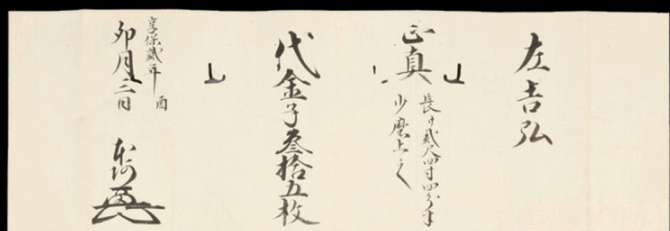 左吉弘
正真
長サ貳尺四寸四分半
少磨上之
代金子叄拾五枚
享保貳年
酉
卯月三日
本阿